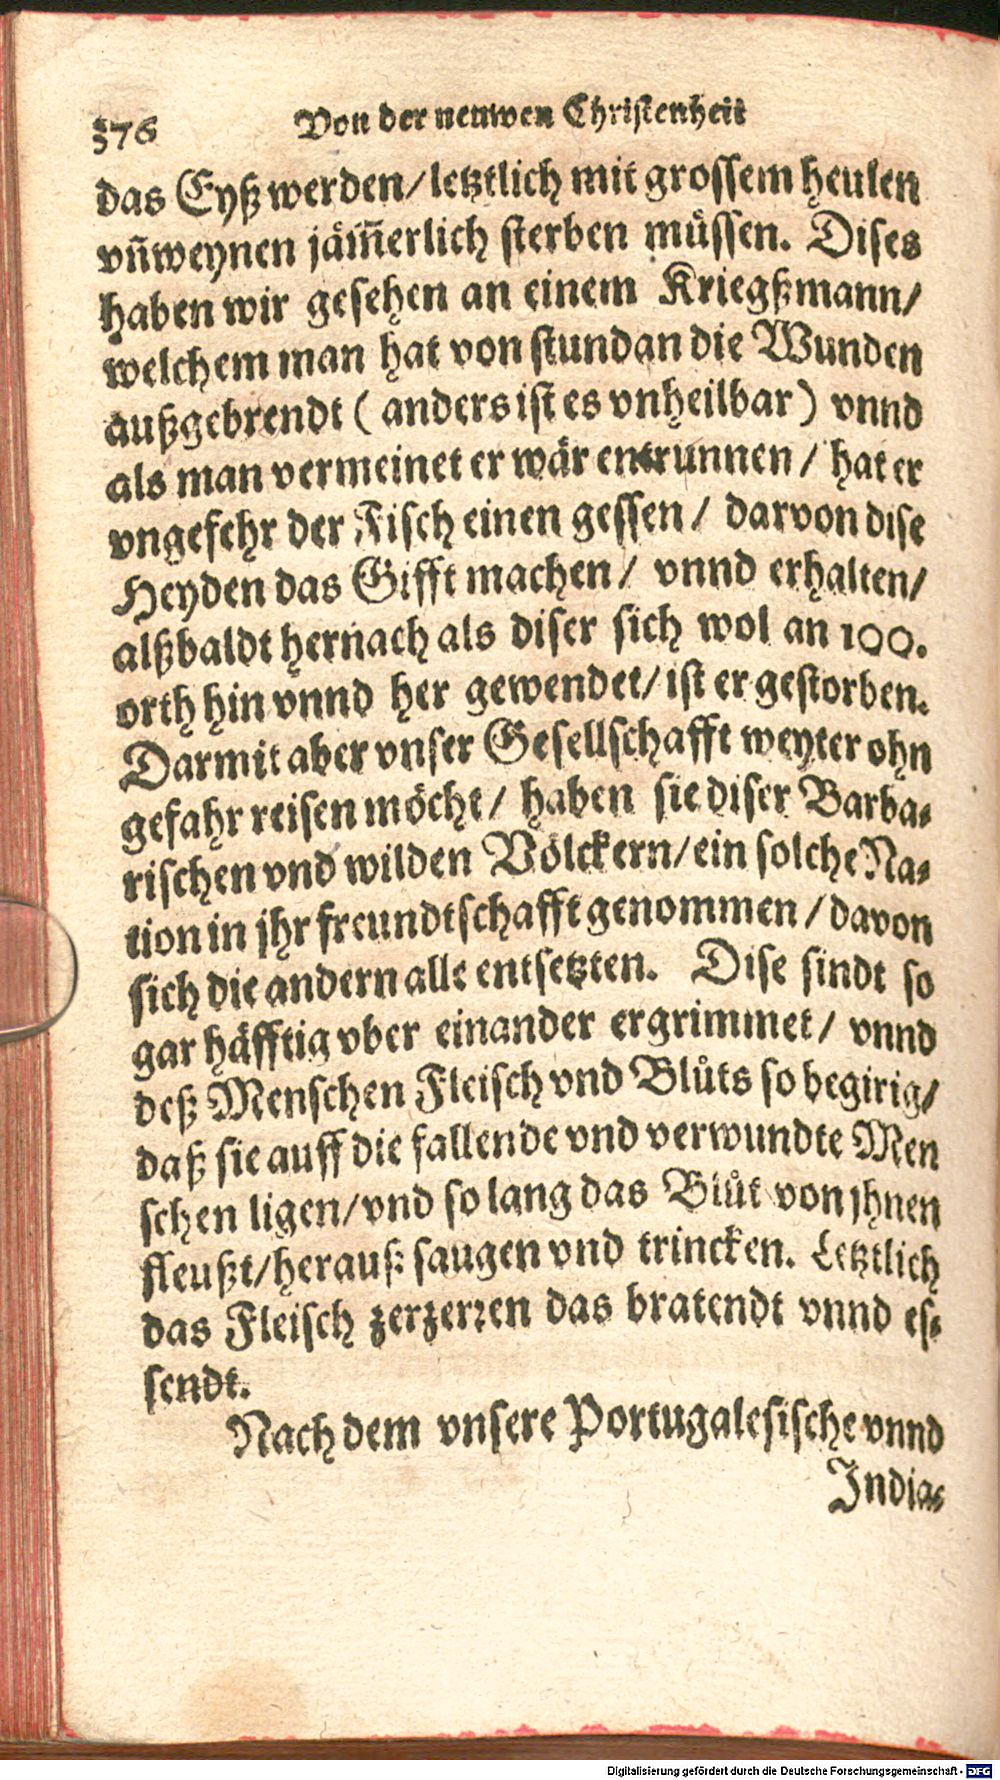 376 Von der neuwen Christenheit
das Eyß werden/ letztlich mit grossem heulen
vñ weynen jäm̃erlich sterben müssen. Dises
haben wir gesehen an einem Kriegßmann/
welchem man hat von stundan die Wunden
außgebrendt ( anders ist es vnheilbar ) vnnd
als man vermeinet er wär entrunnen / hat er
vngefehr der Fisch einen gessen / darvon dise
Heyden das Gifft machen / vnnd erhalten/
alßbaldt hernach als diser sich wol an 100.
orth hin vnnd her gewendet/ ist er gestorben.
Darmit aber vnser Gesellschafft weyter ohn
gefahr reisen möcht / haben sie diser Barba⸗
rischen vnd wilden Völckern/ ein solche Na⸗
tion in jhr freundtschafft genommen / davon
sich die andern alle entsetzten. Dise sindt so
gar häfftig vber einander ergrimmet / vnnd
deß Menschen Fleisch vnd Blůts so begirig/
daß sie auff die fallende vnd verwundte Men
schen ligen/ vnd so lang das Blůt von jhnen
fleußt/ herauß saugen vnd trincken. Letztlich
das Fleisch zerzerren das bratendt vnnd es⸗
sendt.
Nach dem vnsere Portugalesische vnnd
India⸗
Digitalisierung gefördert durch die Deutsche Forschungsgemeinschaft - DFG